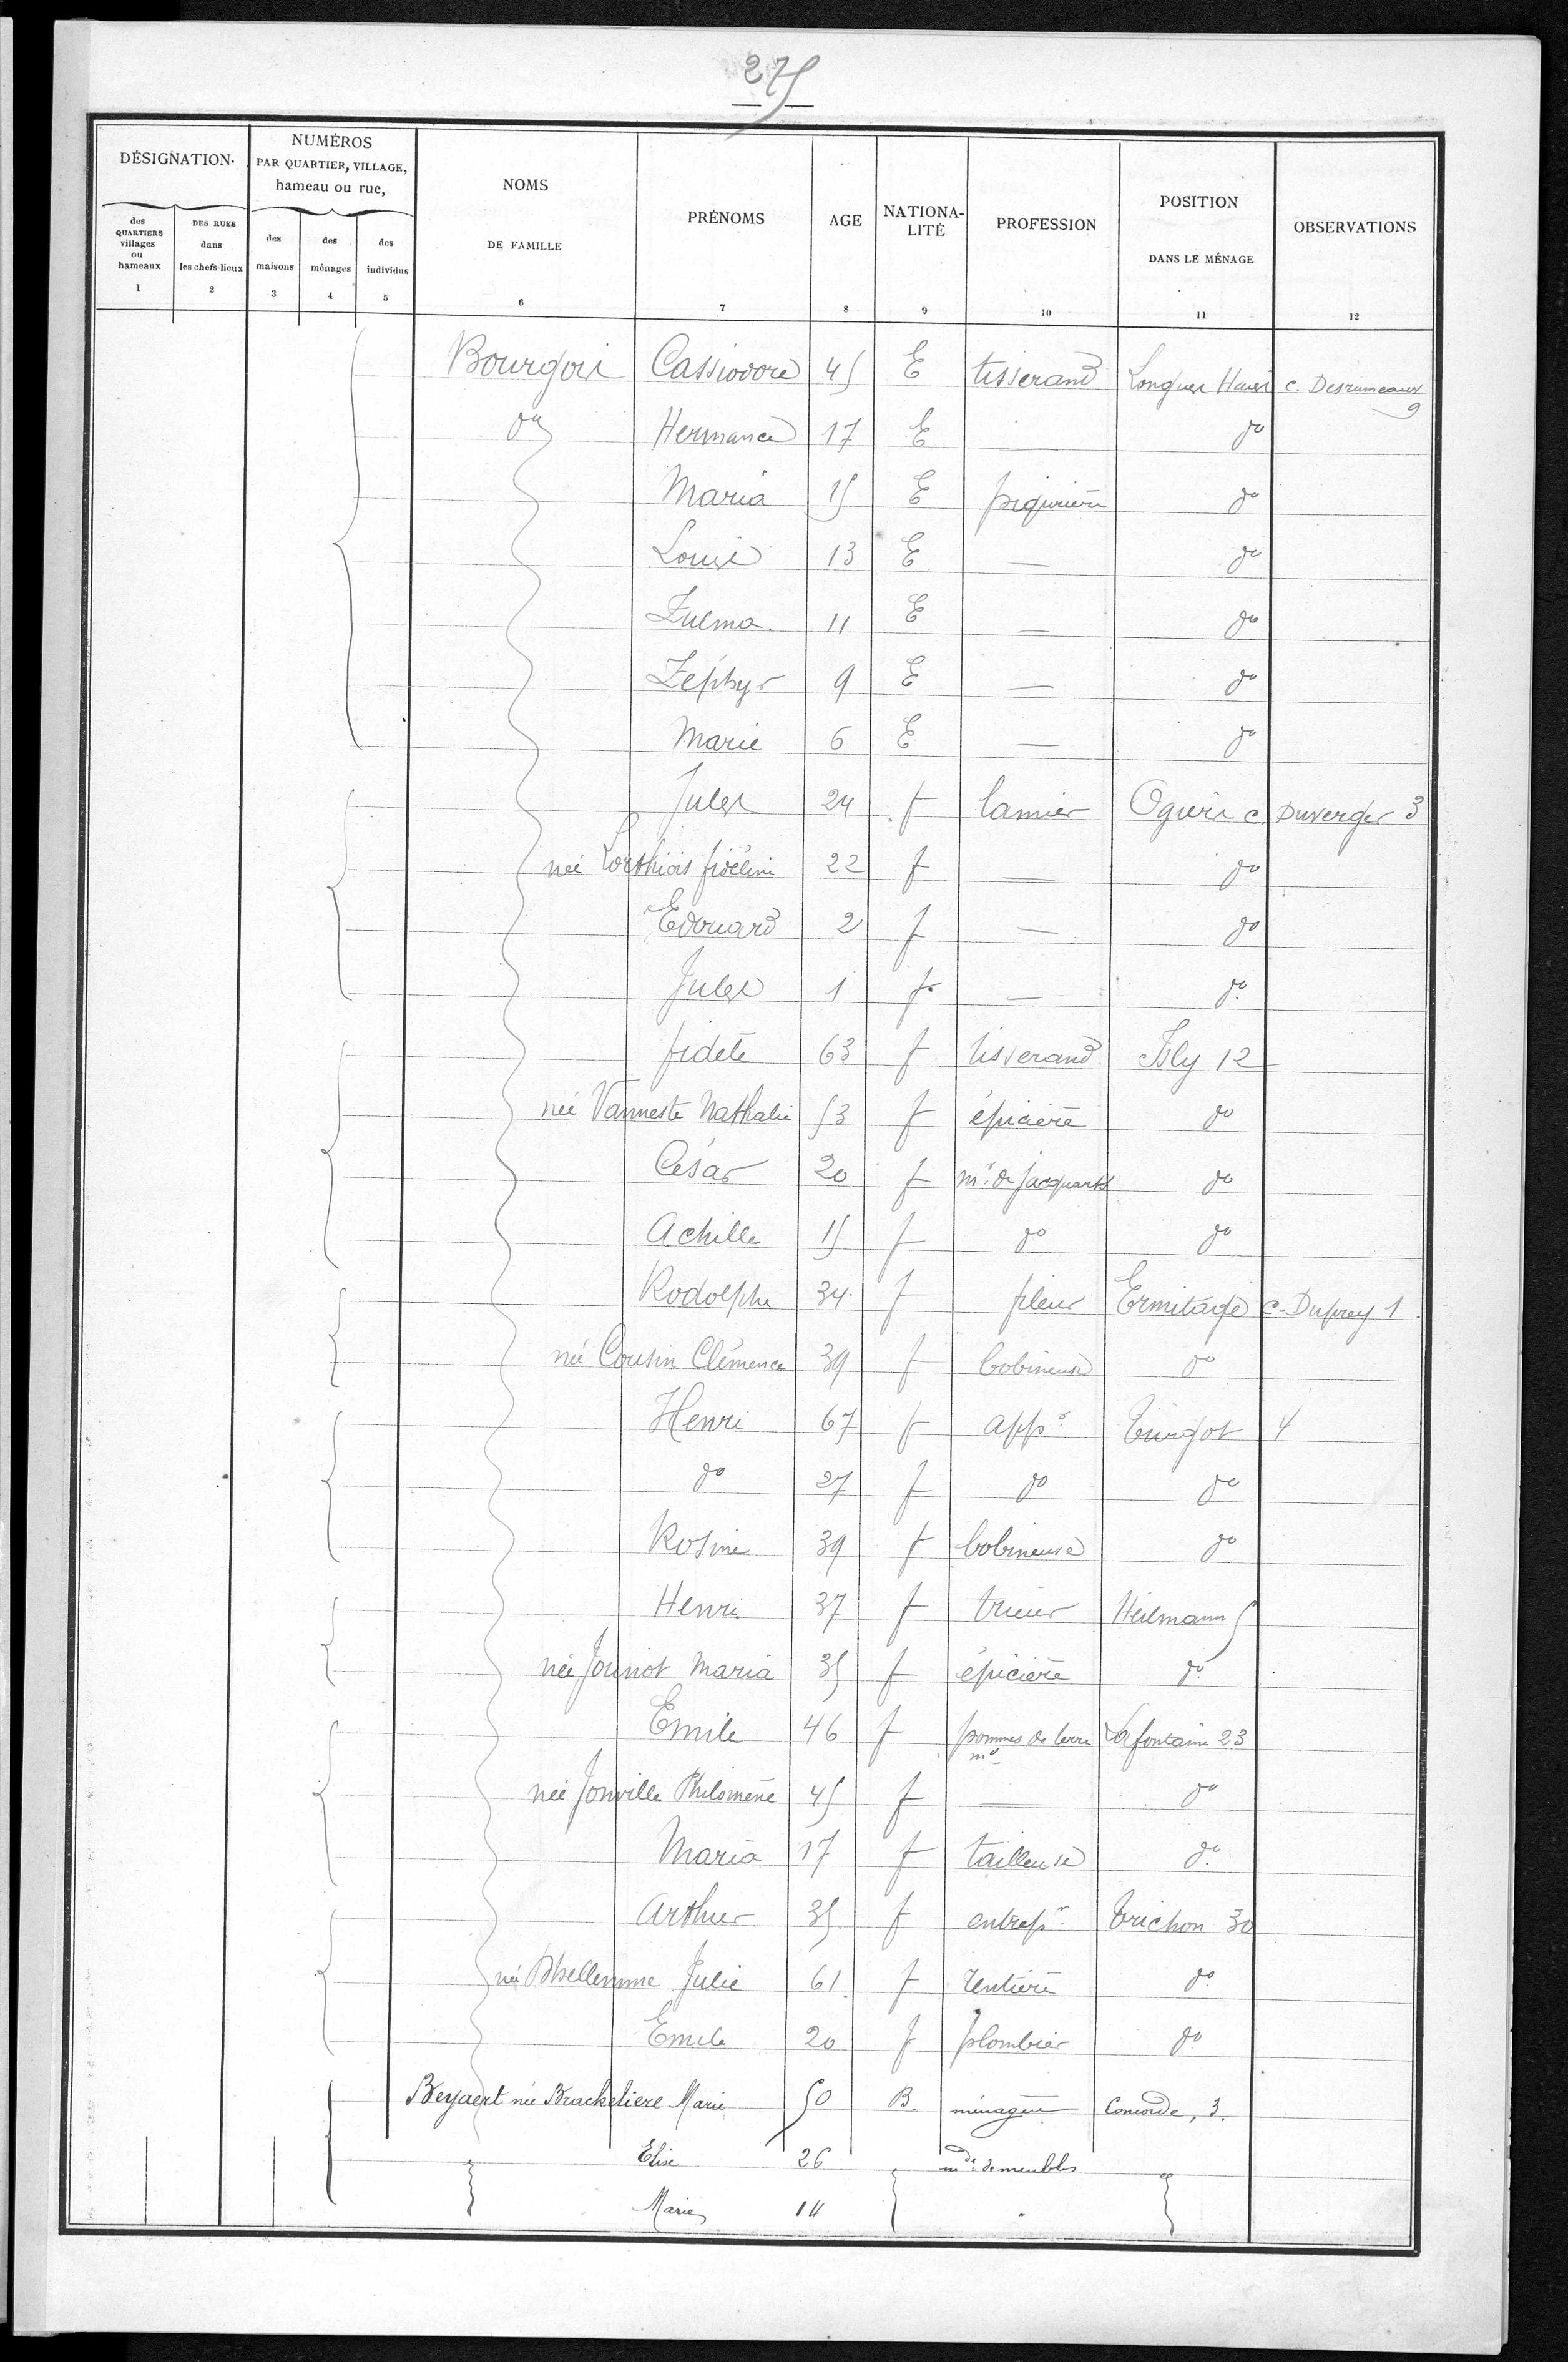 275
DÉSIGNATION
NUMÉROS
PAR QUARTIER, VILLAGE,
hameau ou rue,
NOMS
DE FAMILLE
PRÉNOMS
AGE
NATIONA-
LITÉ
PROFESSION
POSITION
DANS LE MÉNAGE
OBSERVATIONS
des
QUARTIERS
villages
ou
hameaux
DES RUES
dans
les chefs-lieux
des
maisons
des
ménages
des
individus
1 2 3 4 5 6 7 8 9 10 11 12
Bourgois Cassiodore 45 E tisserand Longues Haies c. Desrumeaux 9
do Hermance 17 E — do
Maria 15 E piqurière do
Louise 13 E — do
Zulma 11 E — do
Zéphyr 9 E — do
Marie 6 E — do
Jules 24 f lamier Ogiers c. Duverger 3
née Lorthiois fidéline 22 f — do
Edouard 2 f — do
Jules 1 f — do
fidèle 63 f tisserand Isly 12
née Vanneste Nathalie 53 f épicière do
César 20 f mr. de jacquarts do
Achille 15 f do do
Rodolphe 34 f fileur Ermitage c. Duprey 1
née Cousin Clémence 39 f bobineuse do
Henri 67 f appr. Turgot 4
do 27 f do do
Rosine 39 f bobineuse do
Henri 37 f trieur Heilmann 5
née Maria 35 f épicière do
Emile 46 f pommes de terre md Lafontaine 23
née Jonville Philomène 45 f — do
Maria 17 f tailleuse do
Arthur 35 f entrepr. Trichon 30
née Julie 61 f rentière do
Emile 20 f plombier do
Beyaert née Brackeliere Marie 50 B. ménagère Concorde, 3.
Elise 26 mde de meubles
Marie 14 "